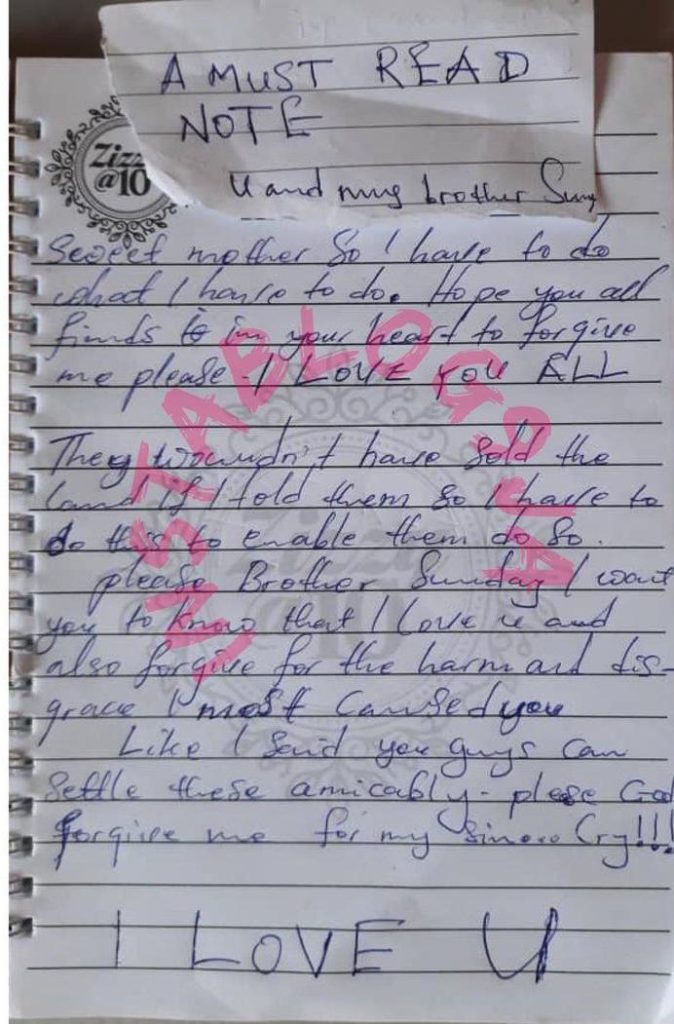 A MUST READ
NOTE
U and my brother Sun
Zizz
@10
Sweet mother So I have to do
what I have to do. Hope you all
finds it in your heart to forgive
me please. I LOVE YOU ALL
They woundn't have Sold the
land if I told them so I have to
do this to enable them do so.
please Brother Sunday I want
you to know that I Love u and
also forgive for the harm and dis-
grace I most Caused you
Like I Said you guys Can
Settle these amicably - plese God
forgive me for my Cry!!!
I LOVE U
INSTABLOG9JA